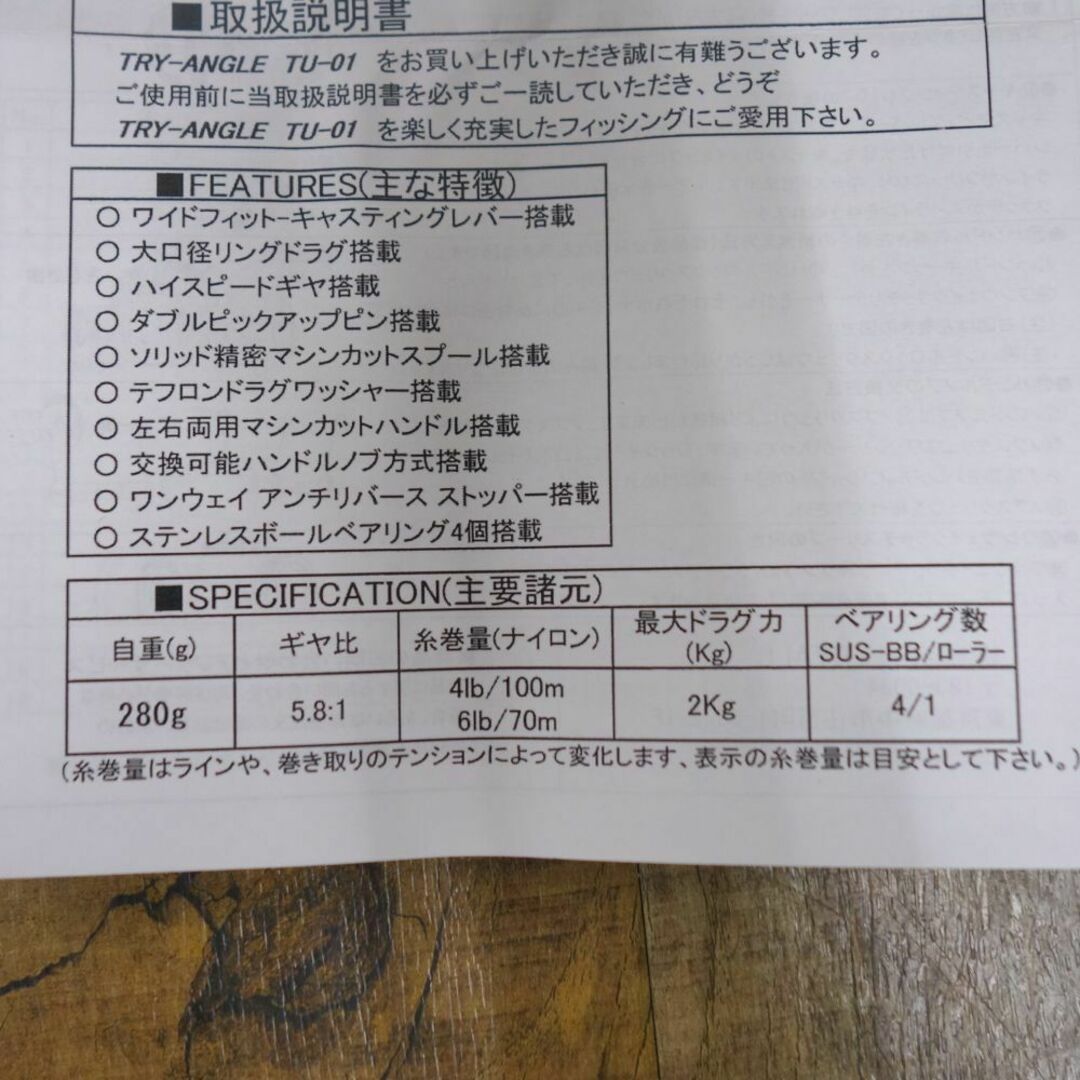 ■取扱説明書
TRY-ANGLE TU-01 をお買い上げいただき誠に有難うございます。
ご使用前に当取扱説明書を必ずご一読していただき、どうぞ
TRY-ANGLE TU-01 を楽しく充実したフィッシングにご愛用下さい。
■FEATURES(主な特徴)
○ ワイドフィット-キャスティングレバー搭載
○ 大口径リングドラグ搭載
○ ハイスピードギヤ搭載
○ ダブルピックアップピン搭載
○ ソリッド精密マシンカットスプール搭載
○ テフロンドラグワッシャー搭載
○ 左右両用マシンカットハンドル搭載
○ 交換可能ハンドルノブ方式搭載
○ ワンウェイ アンチリバース ストッパー搭載
○ ステンレスボールベアリング4個搭載
■SPECIFICATION(主要諸元)
自重(g) ギヤ比 糸巻量(ナイロン) 最大ドラグ力 ベアリング数
(Kg) SUS-BB/ローラー
280g 5.8:1 4lb/100m 2Kg 4/1
6lb/70m
(糸巻量はラインや、巻き取りのテンションによって変化します、表示の糸巻量は目安として下さい。)